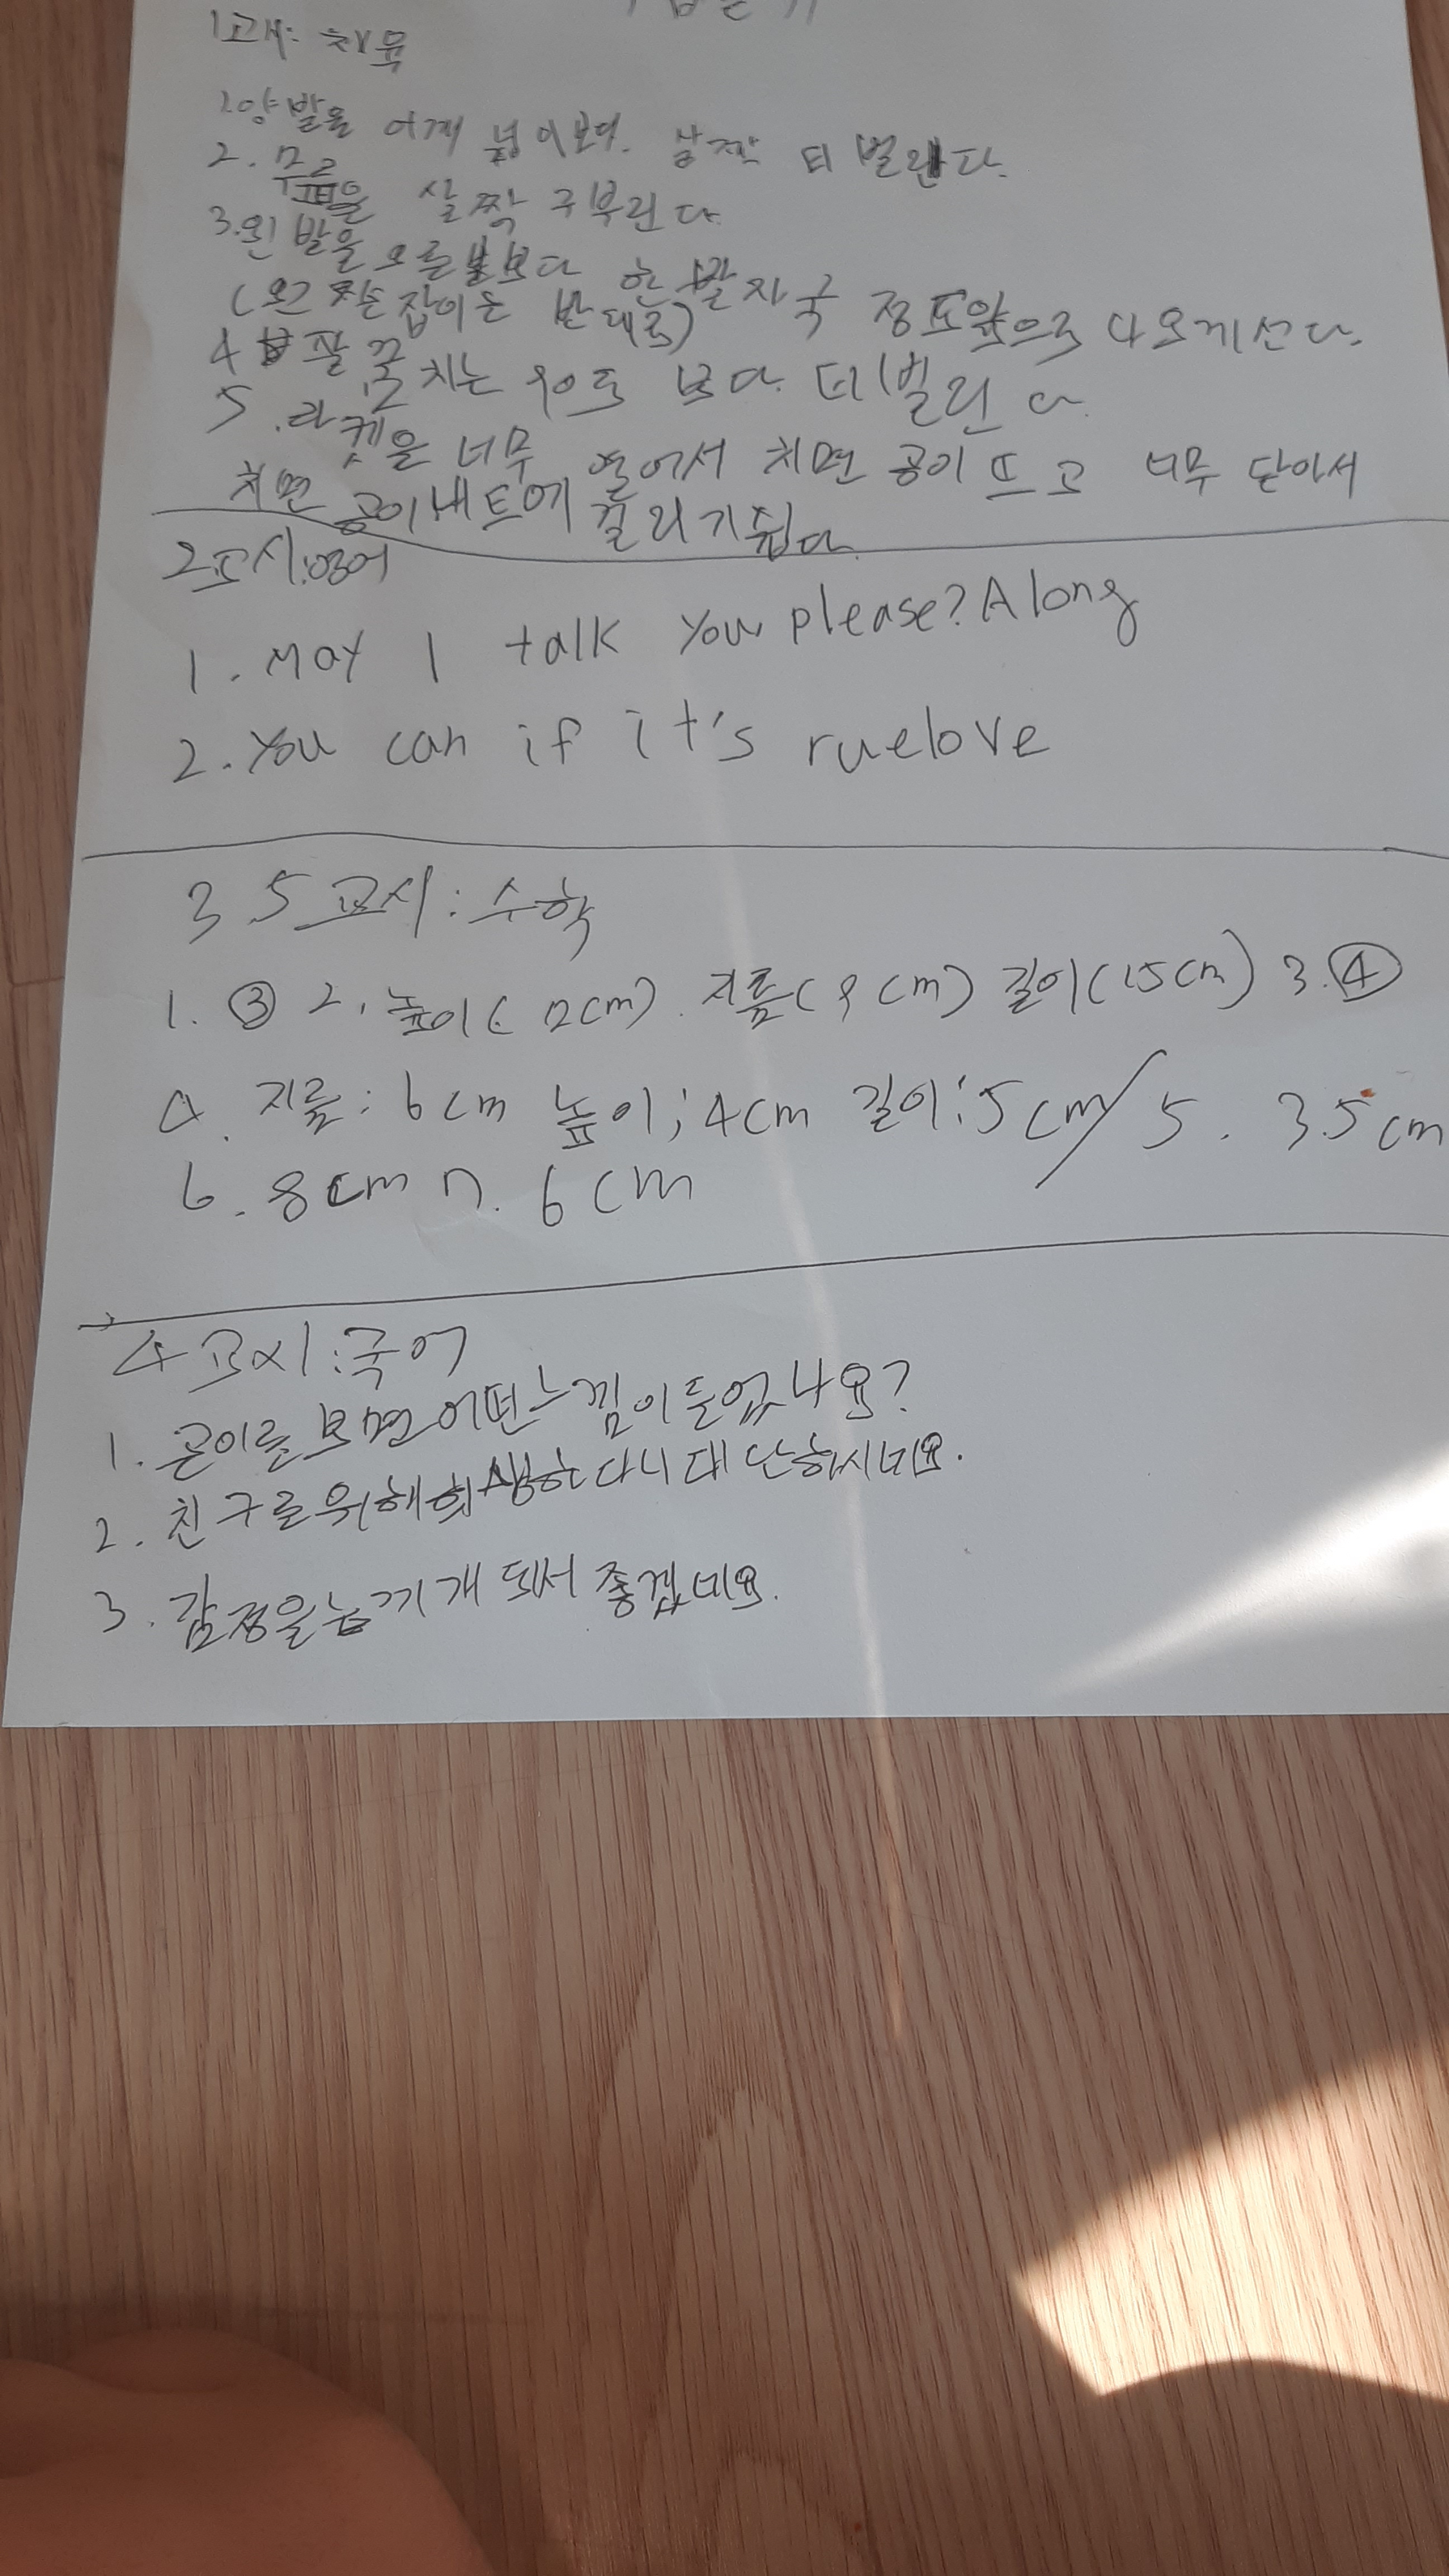 1교시: 체육
1.양발을 어깨 넓이보다. 살짝 더 벌린다.
2. 무릎을 살짝 구부린다
3.왼발을 오른발보다 한 발자국 정도앞으로 나오게선다.
(왼손잡이는 반대로)
4 팔꿈치는 90도 보다. 더 벌린다.
5.라켓을 너무 열어서 치면 공이 뜨고 너무 닫아서
치면 공이네트에 걸리기쉽다.
2교시:영어
1. May I talk you please? Along
2. You can if it's ruelove
3.5교시: 수학
1. ③ 2. 높이( 12cm). 지름(9cm) 길이(15cm) 3.④
4. 지름: 6cm 높이; 4cm 길이: 5cm/ 5. 3.5cm
6. 8cm 7. 6cm
4교시:국어
1. 곤이를 보면 어떤느낌이들었나요?
2. 친구를위해희생한다니대단하시네요.
3. 감정을느끼개 되서 좋겠네요.